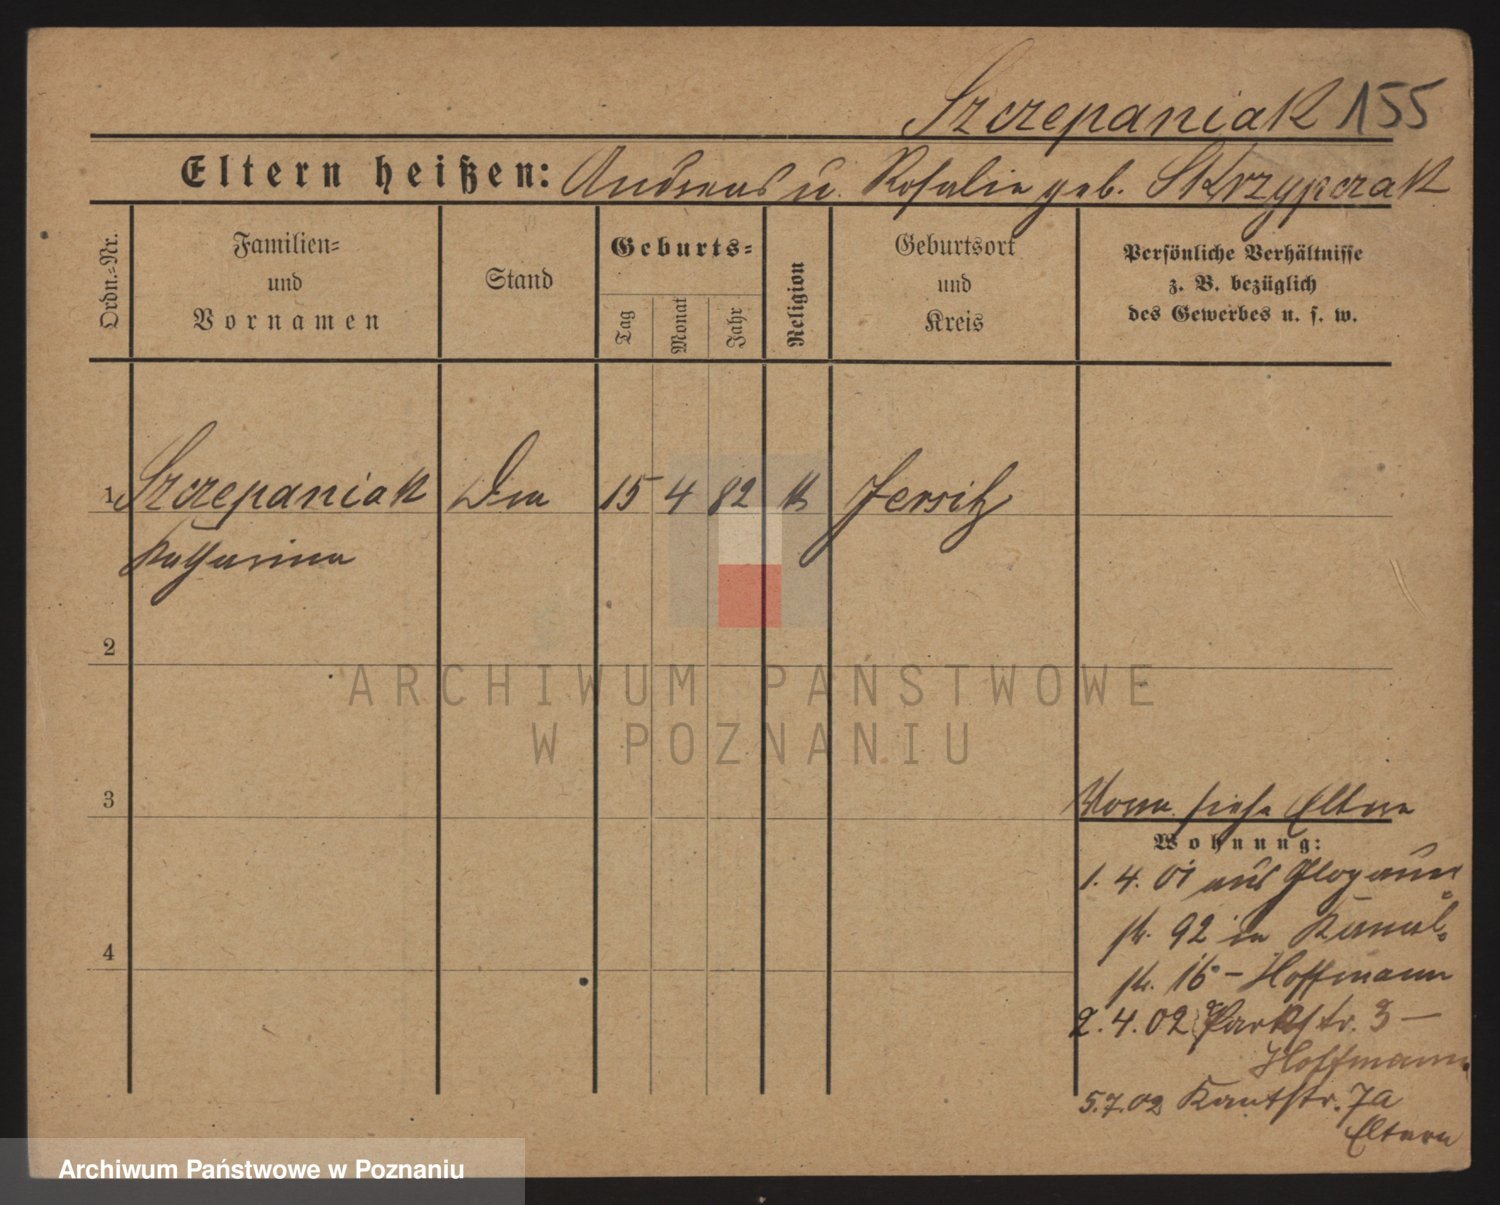 Szczepaniak 155
Eltern heißen: Andreas u. Rosalie geb. Skrzypczak
Ordn.-Nr.
Familien-
und
Vornamen
Stand
Geburts-
Tag
Monat
Jahr
Religion
Geburtsort
und
Kreis
Persönliche Verhältnisse
z. B. bezüglich
des Gewerbes u. s. w.
1 Szczepaniak 15 4 82 k Jersitz
Katharina
2
3
4
siehe Eltern
Wohnung:
1. 4. 01 aus Glogauer
str. 92 in Kanal-
str. 16 - Hoffmann
2. 4. 02 Parkstr. 3 -
Hoffmann
5.7.02 Kantstr. 7a
Eltern
ARCHIWUM PAŃSTWOWE
W POZNANIU
Archiwum Państwowe w Poznaniu